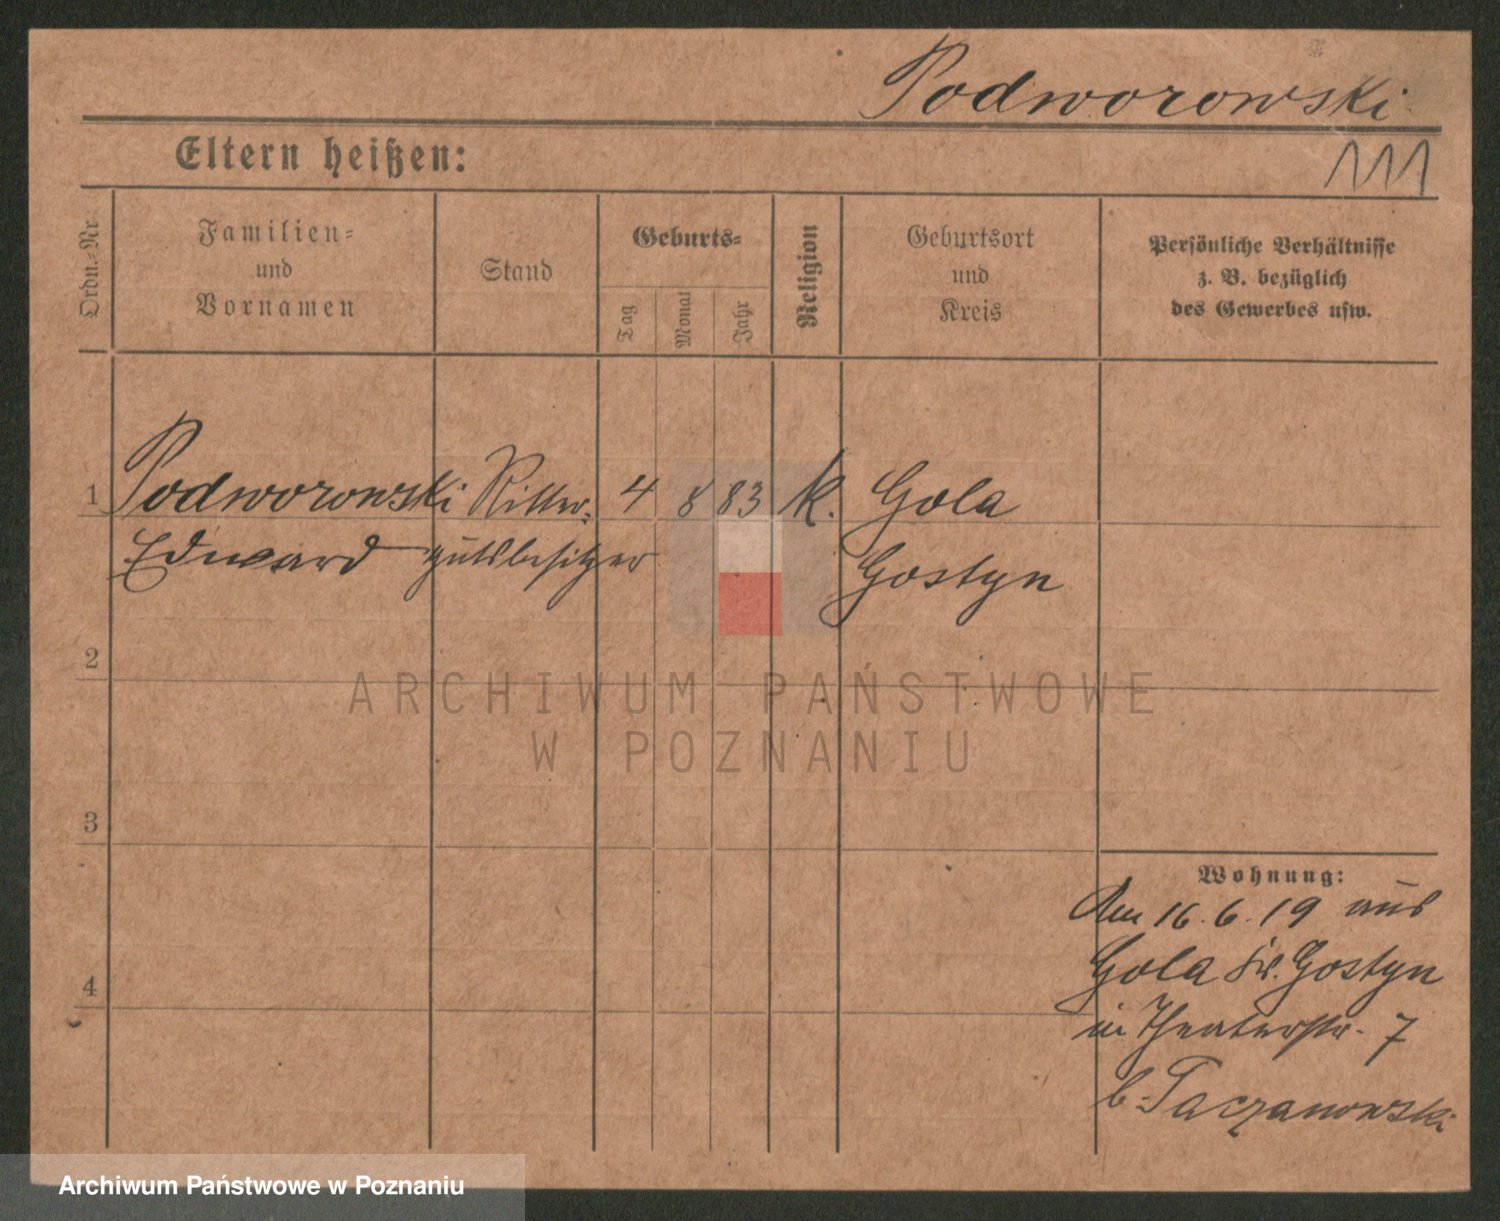 Podworowski
Eltern heißen:
111
Ordn.-Nr
Familien-
und
Vornamen
Stand
Geburts-
Tag
Monat
Jahr
Religion
Geburtsort
und
Kreis
Persönliche Verhältnisse
z. B. bezüglich
des Gewerbes usw.
1 Podworowski Ritter- 4 8 83 k. Gola
Edward gutsbesitzer Gostyn
2
ARCHIWUM PAŃSTWOWE
W POZNANIU
3
Wohnung:
Am 16. 6. 19 aus
Gola Kr. Gostyn
4
in Theaterstr. 7
b. Taczanowski
Archiwum Państwowe w Poznaniu